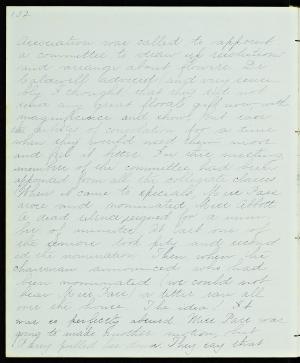 132
Association was called to appoint
a committee to draw up resolutions
and arrange about flowers. Dr.
Caldwell advised and very sensi-
bly I thought that they did not
send any great floral gift now with
magnificence and show but save
the of consolation for a time
when they would need them more
and feel it better. For this meeting
members of the committee had been
appointed from all the collegiate classes
When it came to specials, Miss Pase
arose and nominated Miss Abbott
A dead silence reigned for a num-
ber of minutes. At last one of
the seniors took pity and second
ed the nomination. Then when the
chairman announced who had
been nominated (we could not
hear Miss Pase) a titter ran all
over the house. The idea! It
was so perfectly absurd. Miss Pase was
going to make another motion but
They pulled her down. They say that